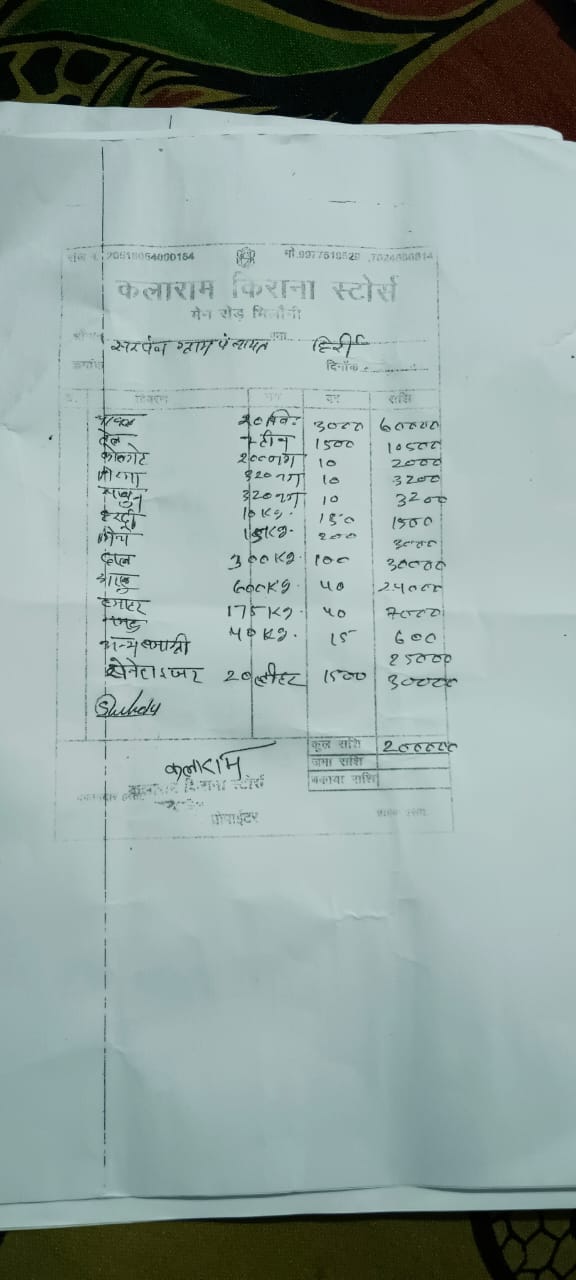 20518054000154 मो.9977518529
कलाराम किराना स्टोर्स
मेन रोड़
सरपंच ग्राम पंचायत हिर्री
दिनाँक
विवरण दर राशि
चावल 20 क्वि. 3000 60000
तेल 7 टीन 1500 10500
कोलगेट 200 नग 10 2000
320 नग 10 3200
साबुन 320 नग 10 3200
हल्दी 10 Kg. 150 1500
15 Kg. 200 3000
दाल 300 Kg. 100 30000
आलु 600 Kg. 40 24000
टमाटर 175 Kg. 40 7000
40 Kg. 15 600
अन्य सामग्री 25000
सेनेटाइजर 20 लीटर 1500 30000
कुल राशि 200000
जमा राशि
बकाया राशि
कलाराम
कलाराम किराना स्टोर्स
प्रोपाईटर